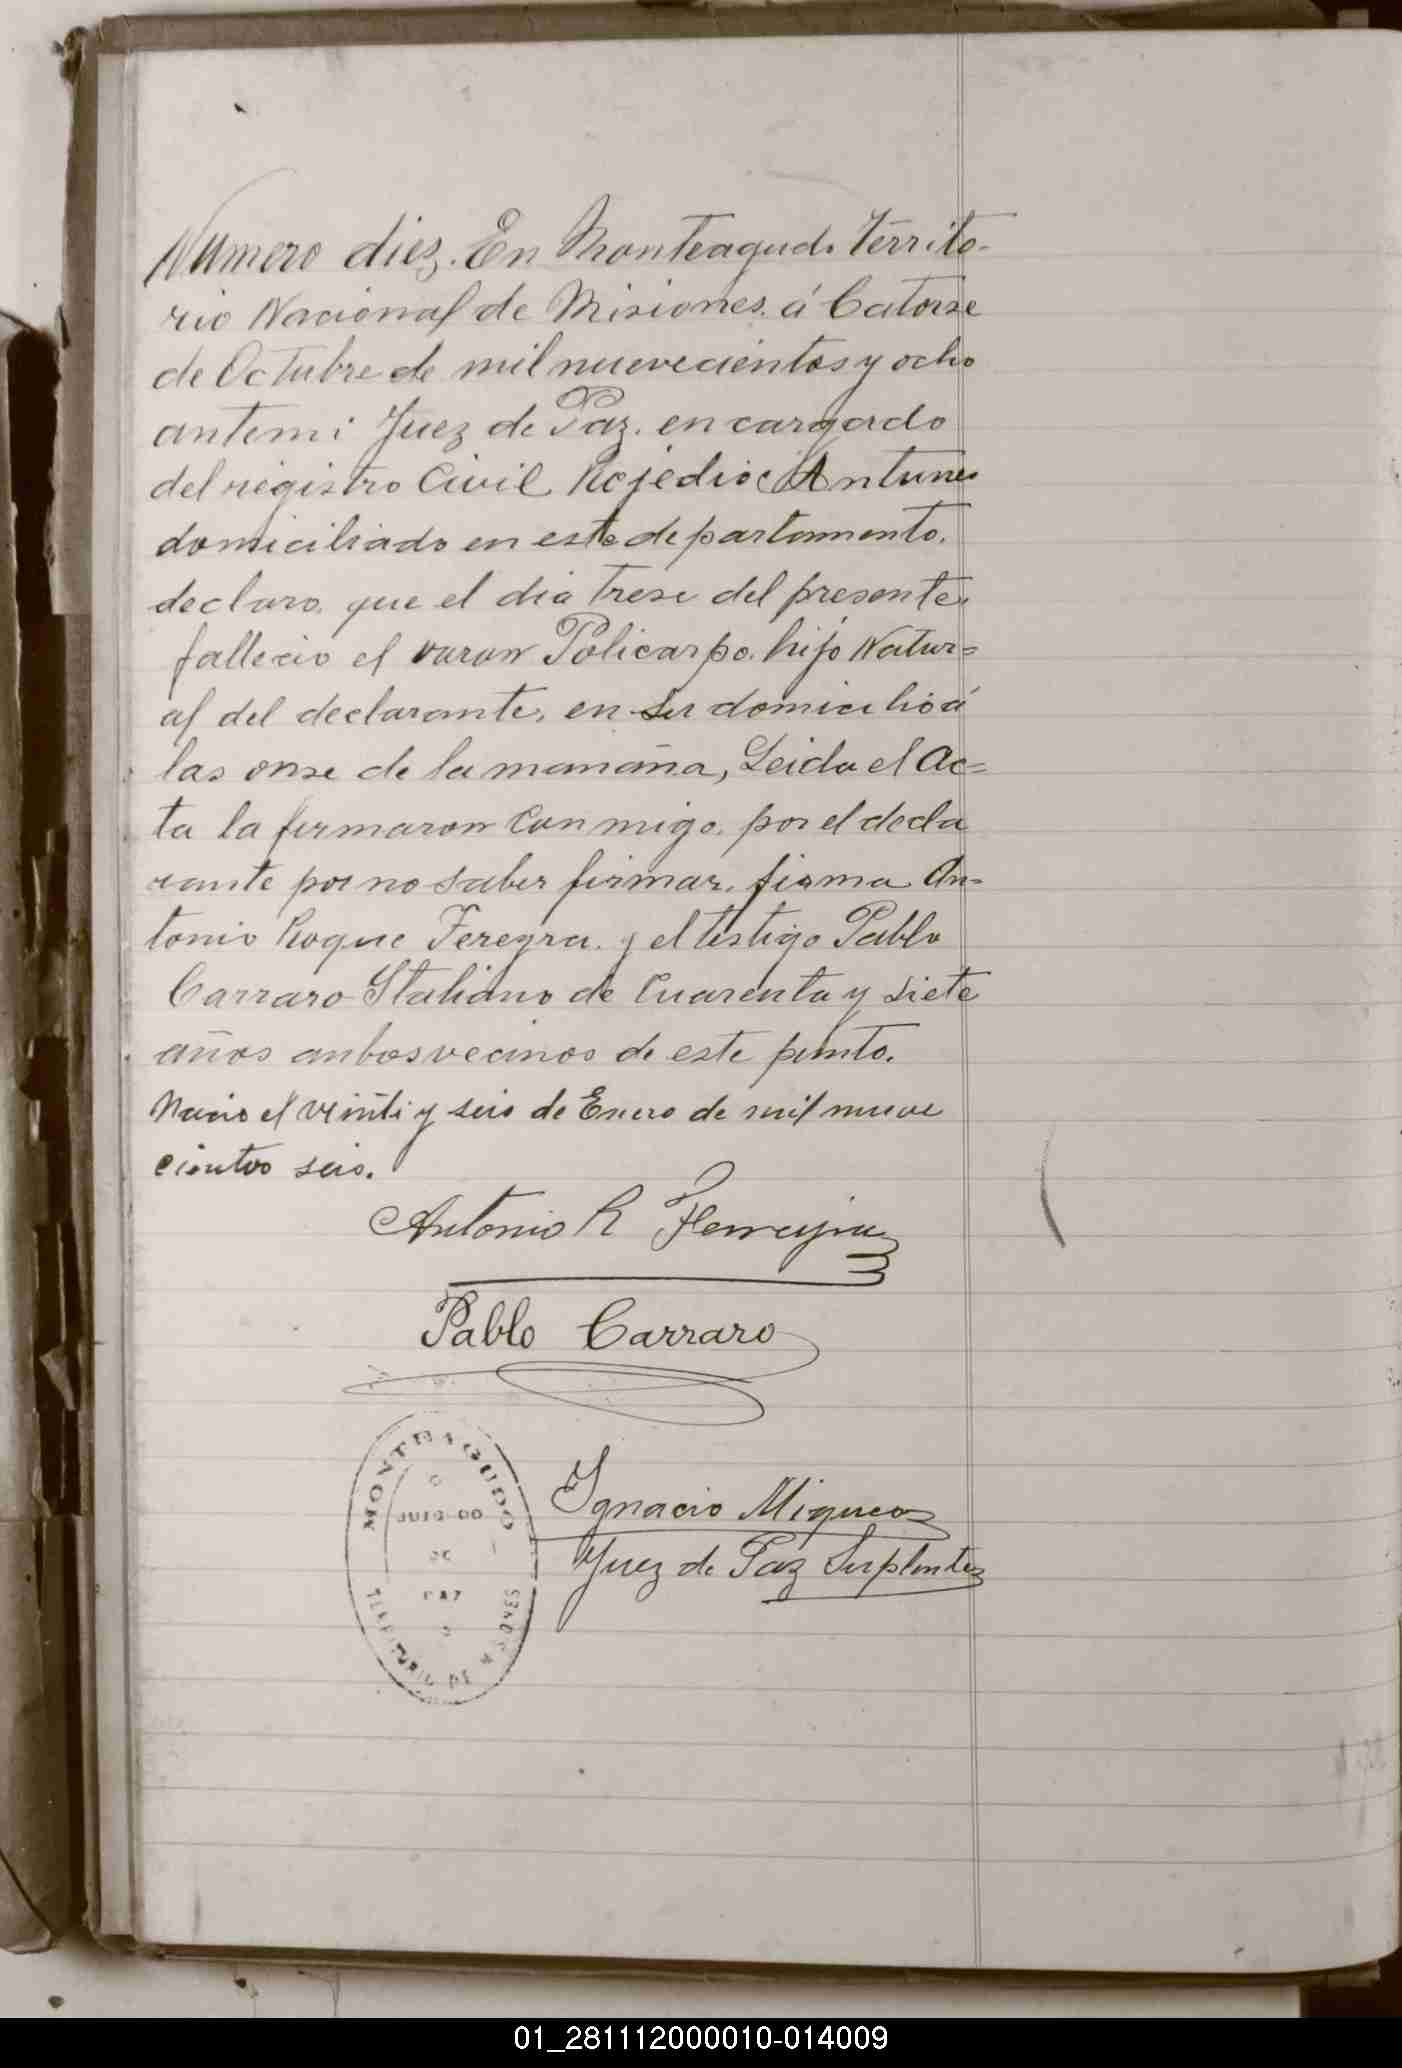 Numero diez. En Monteagudo Territo-
rio Nacional de Misiones. á Catorse
de Octubre de mil nuevecientos y ocho
antemi Juez de Paz. encargado
del registro Civil Antunes
domiciliado en este departamento.
declaro, que el dia trese del presente,
fallecio el varon Policarpo. hijo Natur=
al del declarante, en su domicilio á
las onse de la mañana, Leida el Ac=
ta la firmaron Conmigo. por el decla
rante por no saber firmar. firma An=
tonio Roque Fereyra. y el testigo Pablo
Carraro Italiano de Cuarenta y siete
años anbos vecinos de este punto.
Nacio el veinti y seis de Enero de mil nueve
cientos seis.
Antonio R Ferreyra
Pablo Carraro
MONTEAGUDO
JUZGADO
DE
PAZ
TERRITORIO DE MISIONES
Ignacio
Juez de Paz Suplente
01_281112000010-014009